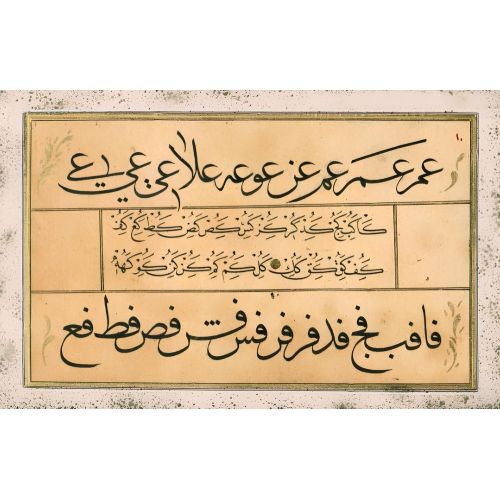 ١٠
عم عم عم عن عو عه علا عي عي
كا كب كج كد كر كس كص كط كع كف
كف كق كك كل كم كم كن كن كو كه
فا فب فج فد فر فر فس فس فص فط فع